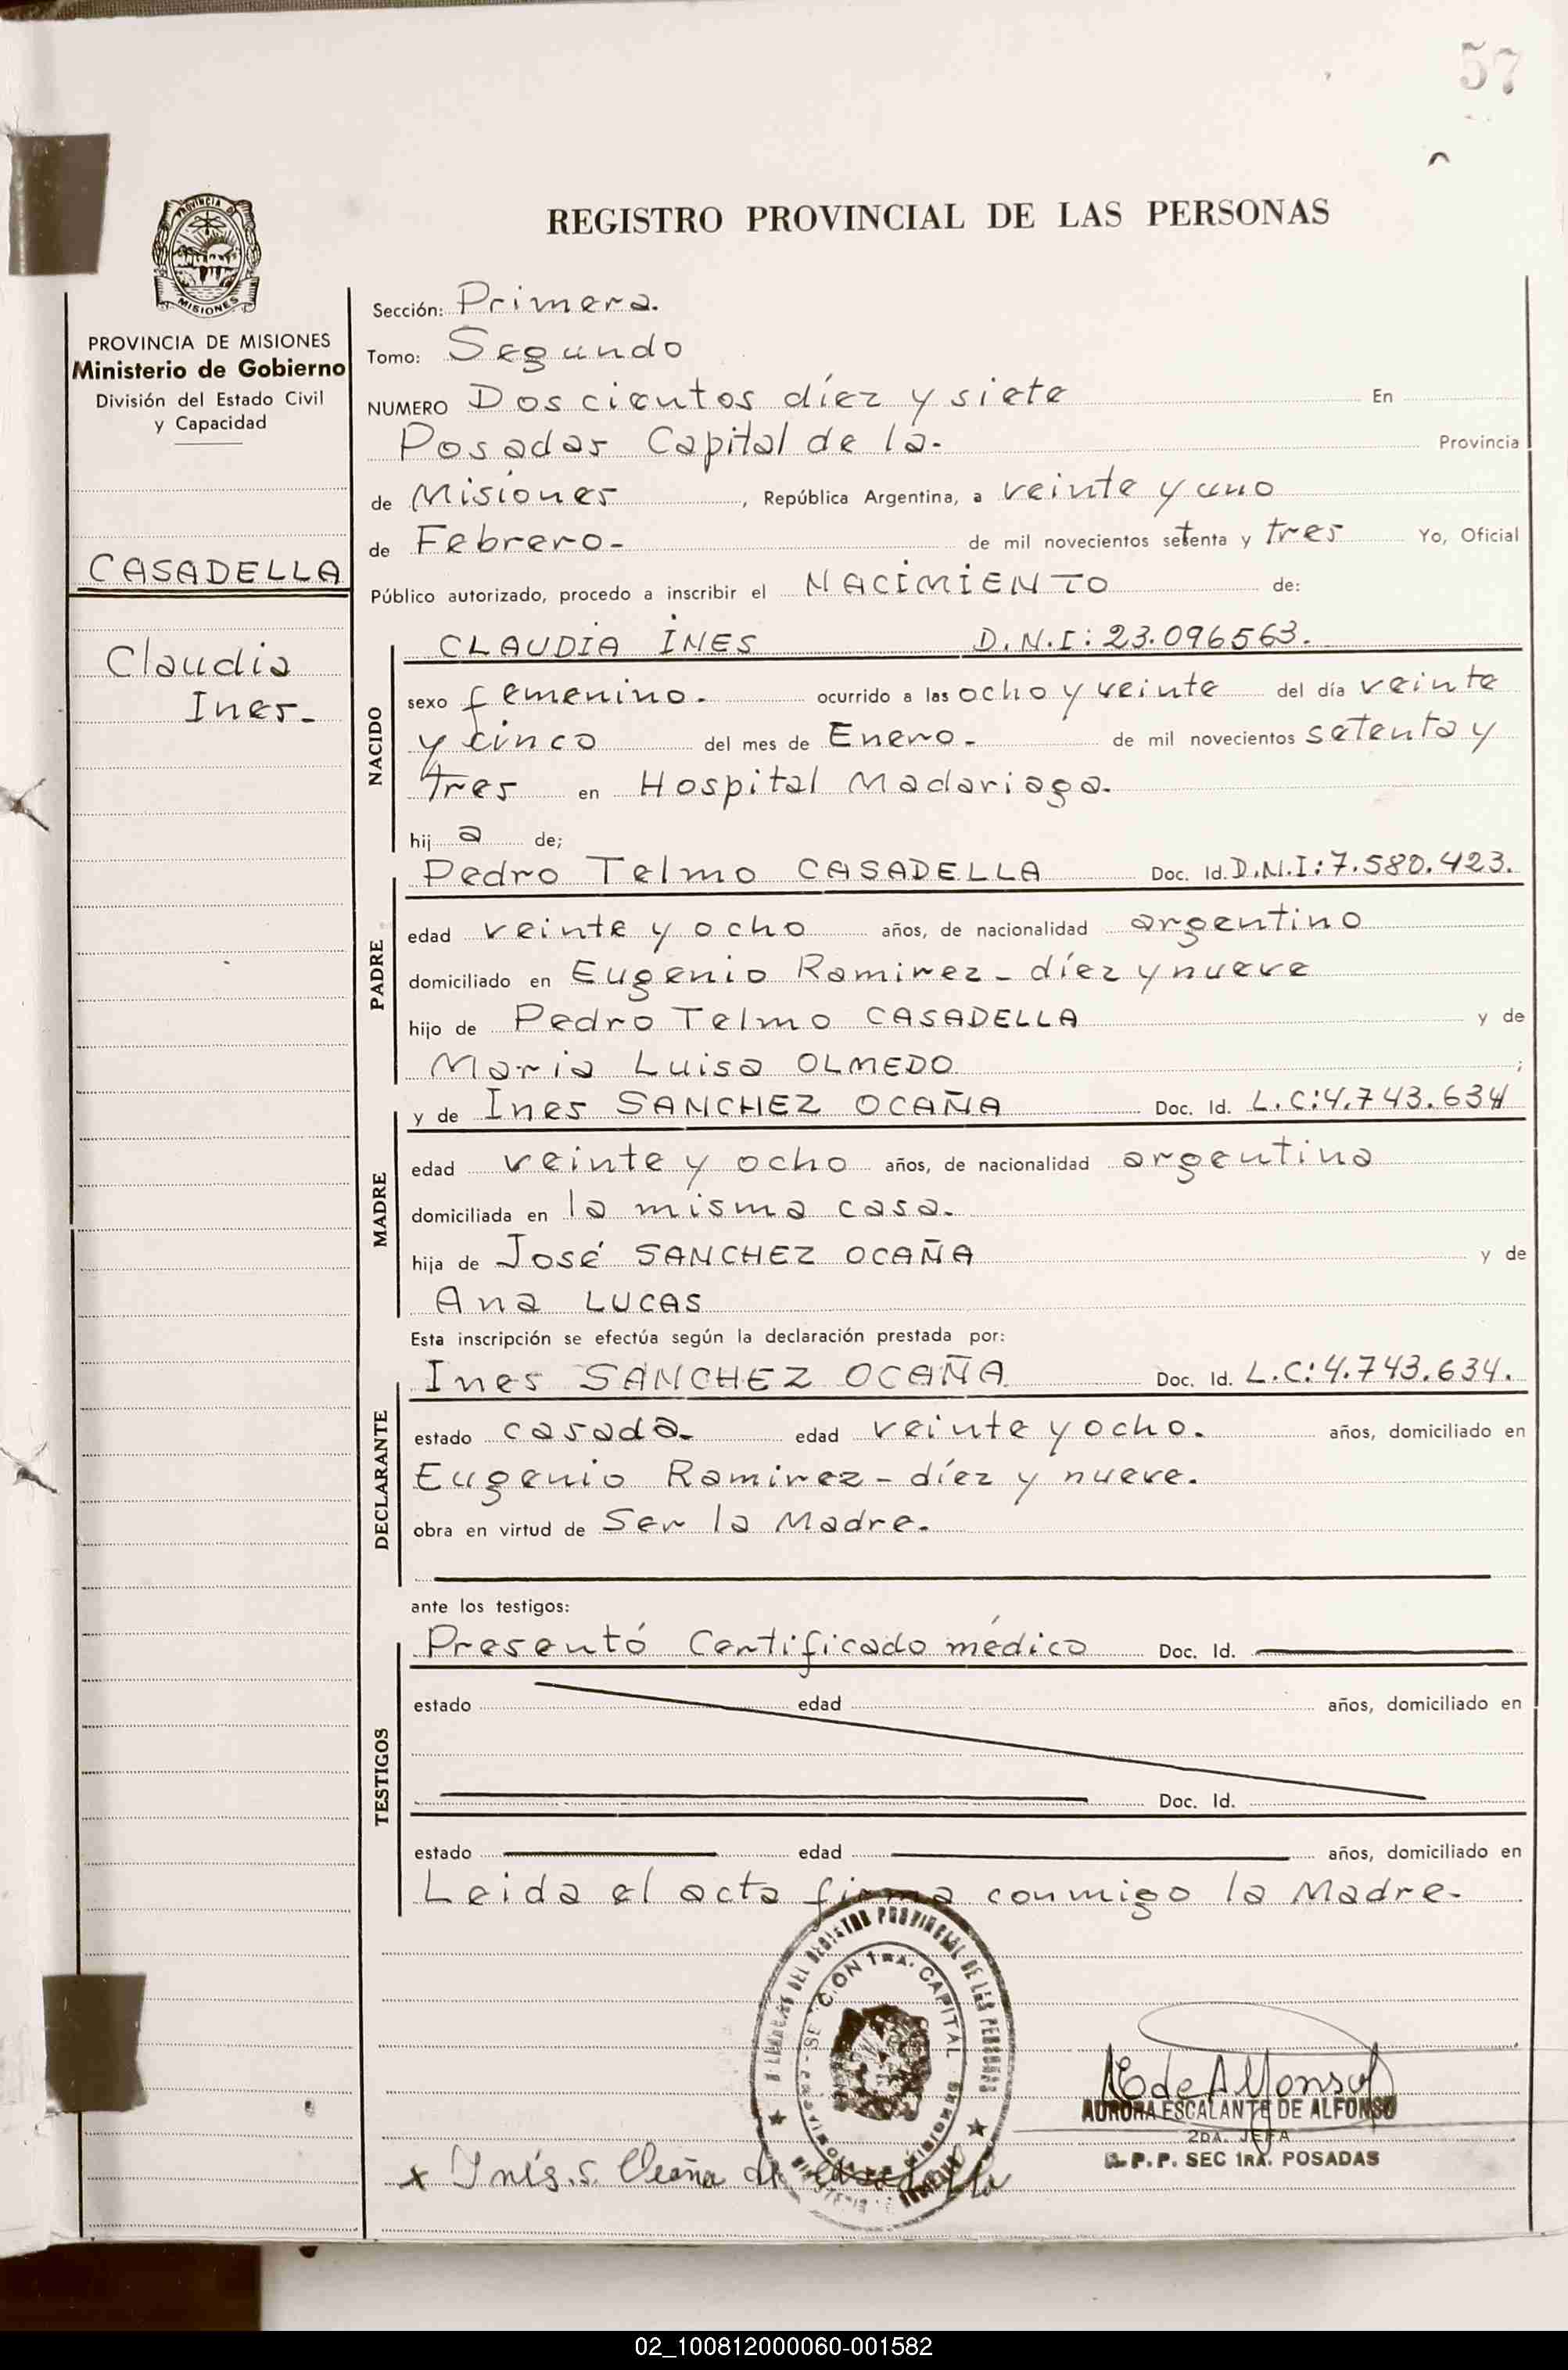 57
PROVINCIA DE
MISIONES
PROVINCIA DE MISIONES
Ministerio de Gobierno
División del Estado Civil
y Capacidad
CASADELLA
Claudia
Ines.-
REGISTRO PROVINCIAL DE LAS PERSONAS
Sección: Primera.
Tomo: Segundo
NUMERO Doscientos díez y siete En
Posadas Capital de la.- Provincia
de Misiones, República Argentina, a veinte y uno
de Febrero.- de mil novecientos setenta y tres Yo, Oficial
Público autorizado, procedo a inscribir el NACIMIENTO de:
NACIDO
CLAUDIA INES D.N.I: 23.096563.
sexo femenino. ocurrido a las ocho y veinte del día veinte
y cinco del mes de Enero.- de mil novecientos setenta y
tres en Hospital Madariaga.
hija de;
PADRE
Pedro Telmo CASADELLA Doc. Id. D.N.I: 7.580.423.
edad veinte y ocho años, de nacionalidad argentino
domiciliado en Eugenio Ramirez - díez y nueve
hijo de Pedro Telmo CASADELLA y de
Maria Luisa OLMEDO ;
MADRE
y de Ines SANCHEZ OCAÑA Doc. Id. L.C: 4.743.634
edad veinte y ocho años, de nacionalidad argentina
domiciliada en la misma casa.
hija de José SANCHEZ OCAÑA y de
Ana LUCAS
Esta inscripción se efectúa según la declaración prestada por:
DECLARANTE
Ines SANCHEZ OCAÑA Doc. Id. L.C: 4.743.634.
estado casada. edad veinte y ocho. años, domiciliado en
Eugenio Ramirez - díez y nueve.
obra en virtud de Ser la Madre.
ante los testigos:
TESTIGOS
Presentó Certificado médico Doc. Id.
estado edad años, domiciliado en
Doc. Id.
estado edad años, domiciliado en
Leida el acta firma conmigo la Madre.
DEL REGISTRO PROVINCIAL DE LAS PERSONAS
SECCION 1RA. CAPITAL
AE de Alfonso
AURORA ESCALANTE DE ALFONSO
2DA. JEFA
R.P.P. SEC 1RA. POSADAS
x Inés. S. Ocaña de Casadella
02_100812000060-001582